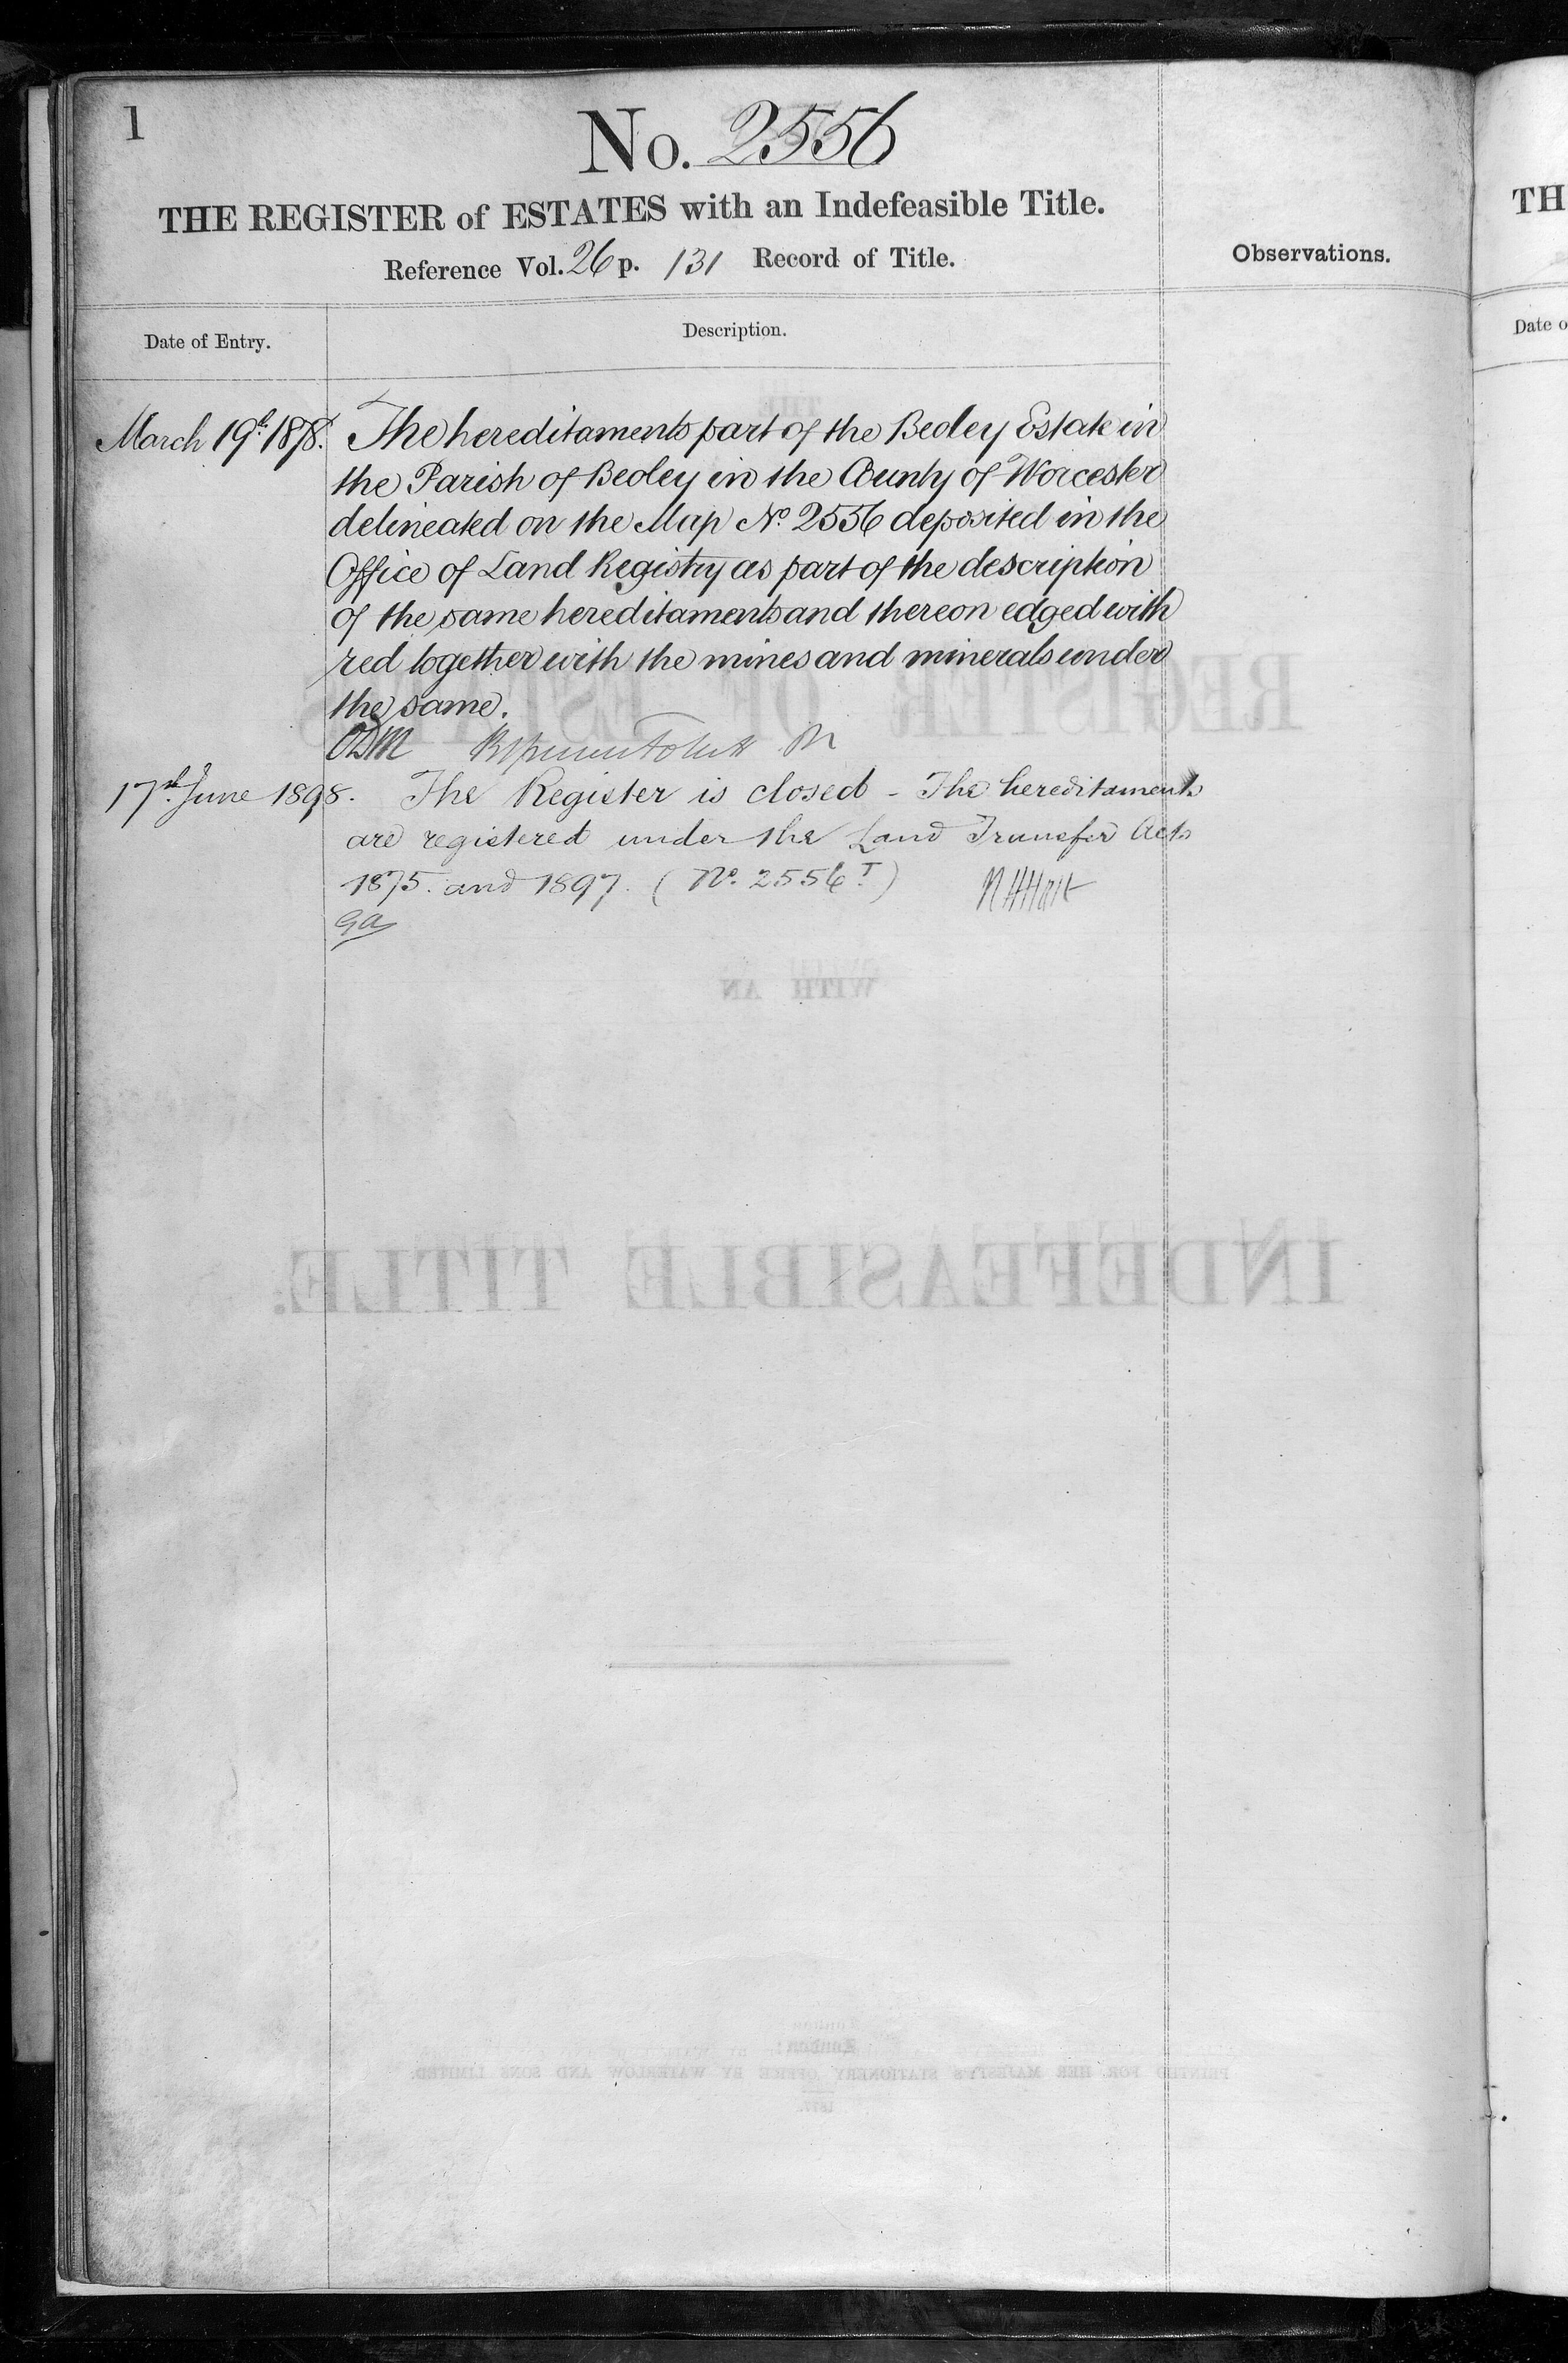 1
No. 2556
THE REGISTER of ESTATES with an Indefeasible Title.
Reference Vol. 26 p. 131 Record of Title.
Observations.
Date of Entry.
Description.
March 19th 1878.
The hereditaments part of the Beoley Estate in
the Parish of Beoley in the County of Worcester
delineated on the Map No. 2556 deposited in the
Office of Land Registry as part of the description
of the same hereditaments and thereon edged with
red together with the mines and minerals under
the same.
17th June 1898. The Register is closed - The hereditaments
are registered under the Land Transfer Acts
1875. and 1897. (No. 2556 T)
TH
Date o
THE
REGISTER OF ESTATES
WITH AN
INDEFEASIBLE TITLE.
London:
PRINTED FOR HER MAJESTY'S STATIONERY OFFICE BY WATERLOW AND SONS LIMITED.
1877.